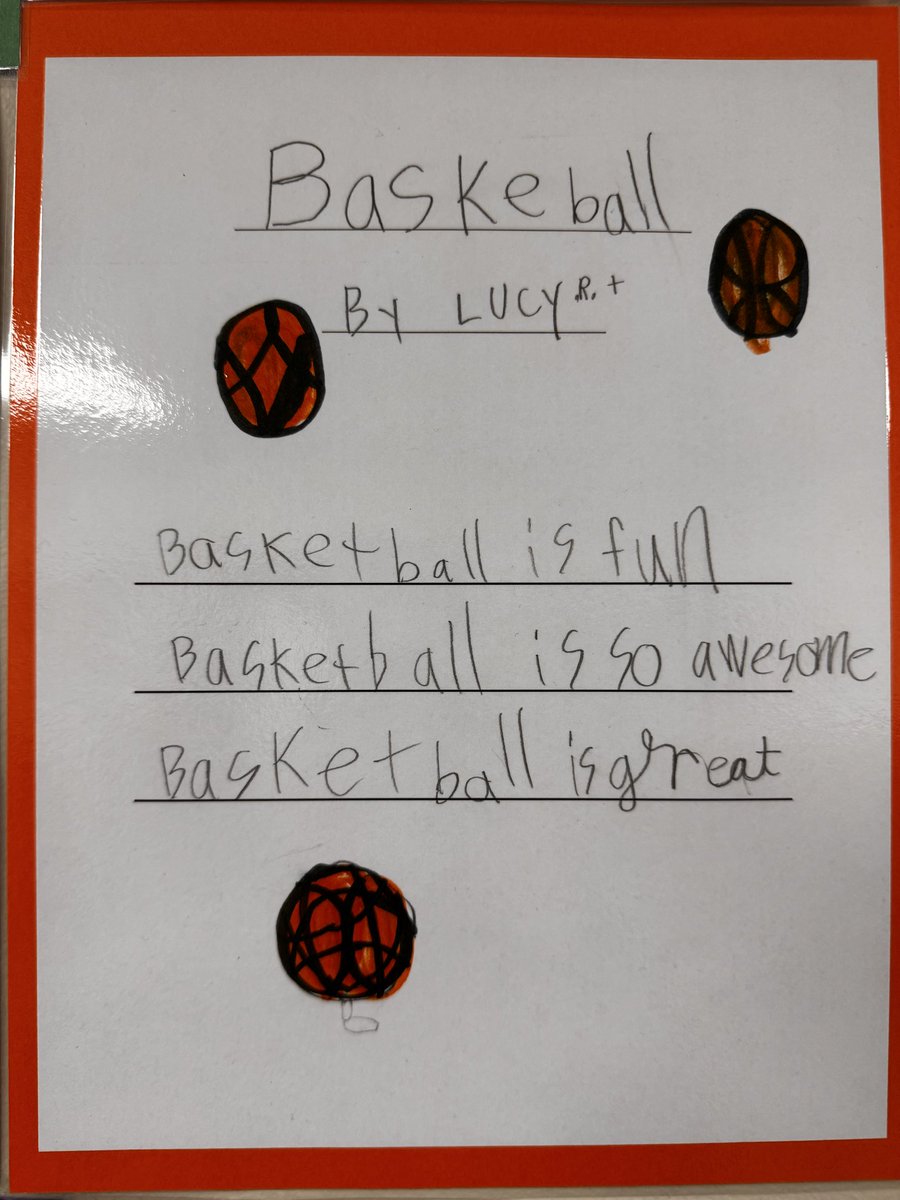 Baskeball
By LUCY .R. +
Basketball is fun
Basketball is so awesome
Basketball is great